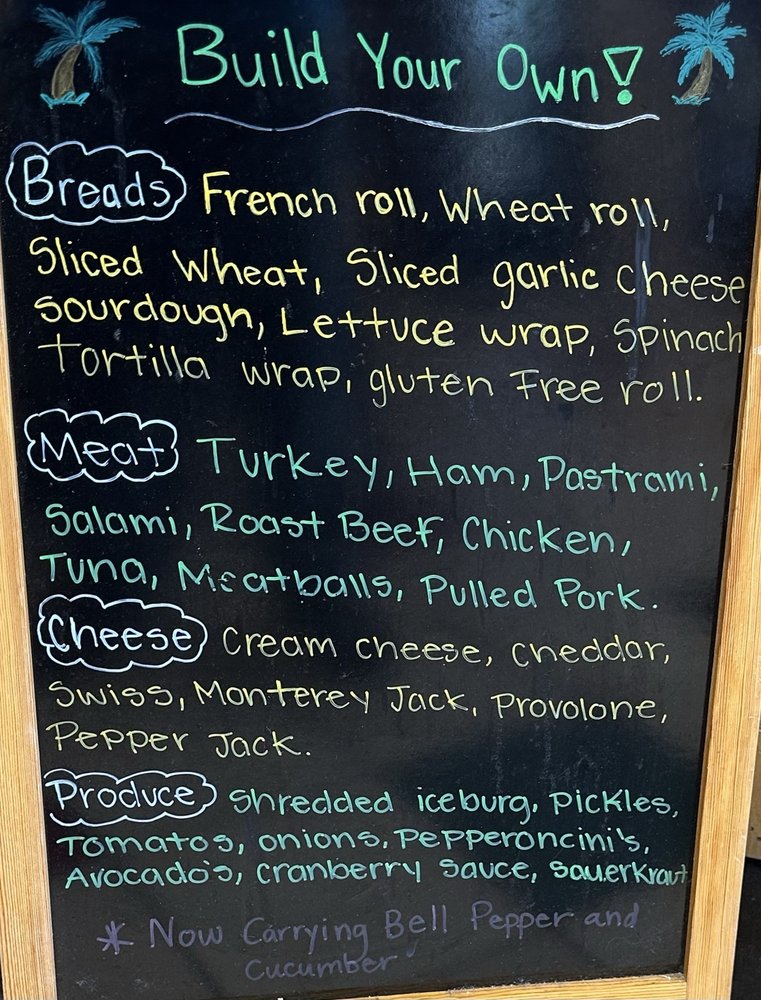 Build Your Own!
Breads French roll, Wheat roll,
Sliced Wheat, Sliced garlic cheese
sourdough, Lettuce wrap, Spinach
Tortilla wrap, gluten Free roll.
Meat Turkey, Ham, Pastrami,
Salami, Roast Beef, Chicken,
Tuna, Meatballs, Pulled Pork.
Cheese Cream cheese, cheddar,
Swiss, Monterey Jack, Provolone,
Pepper Jack.
Produce Shredded iceburg, Pickles,
Tomatos, onions, Pepperoncini's,
Avocado's, cranberry sauce, sauerkraut
* Now Carrying Bell Pepper and
Cucumber